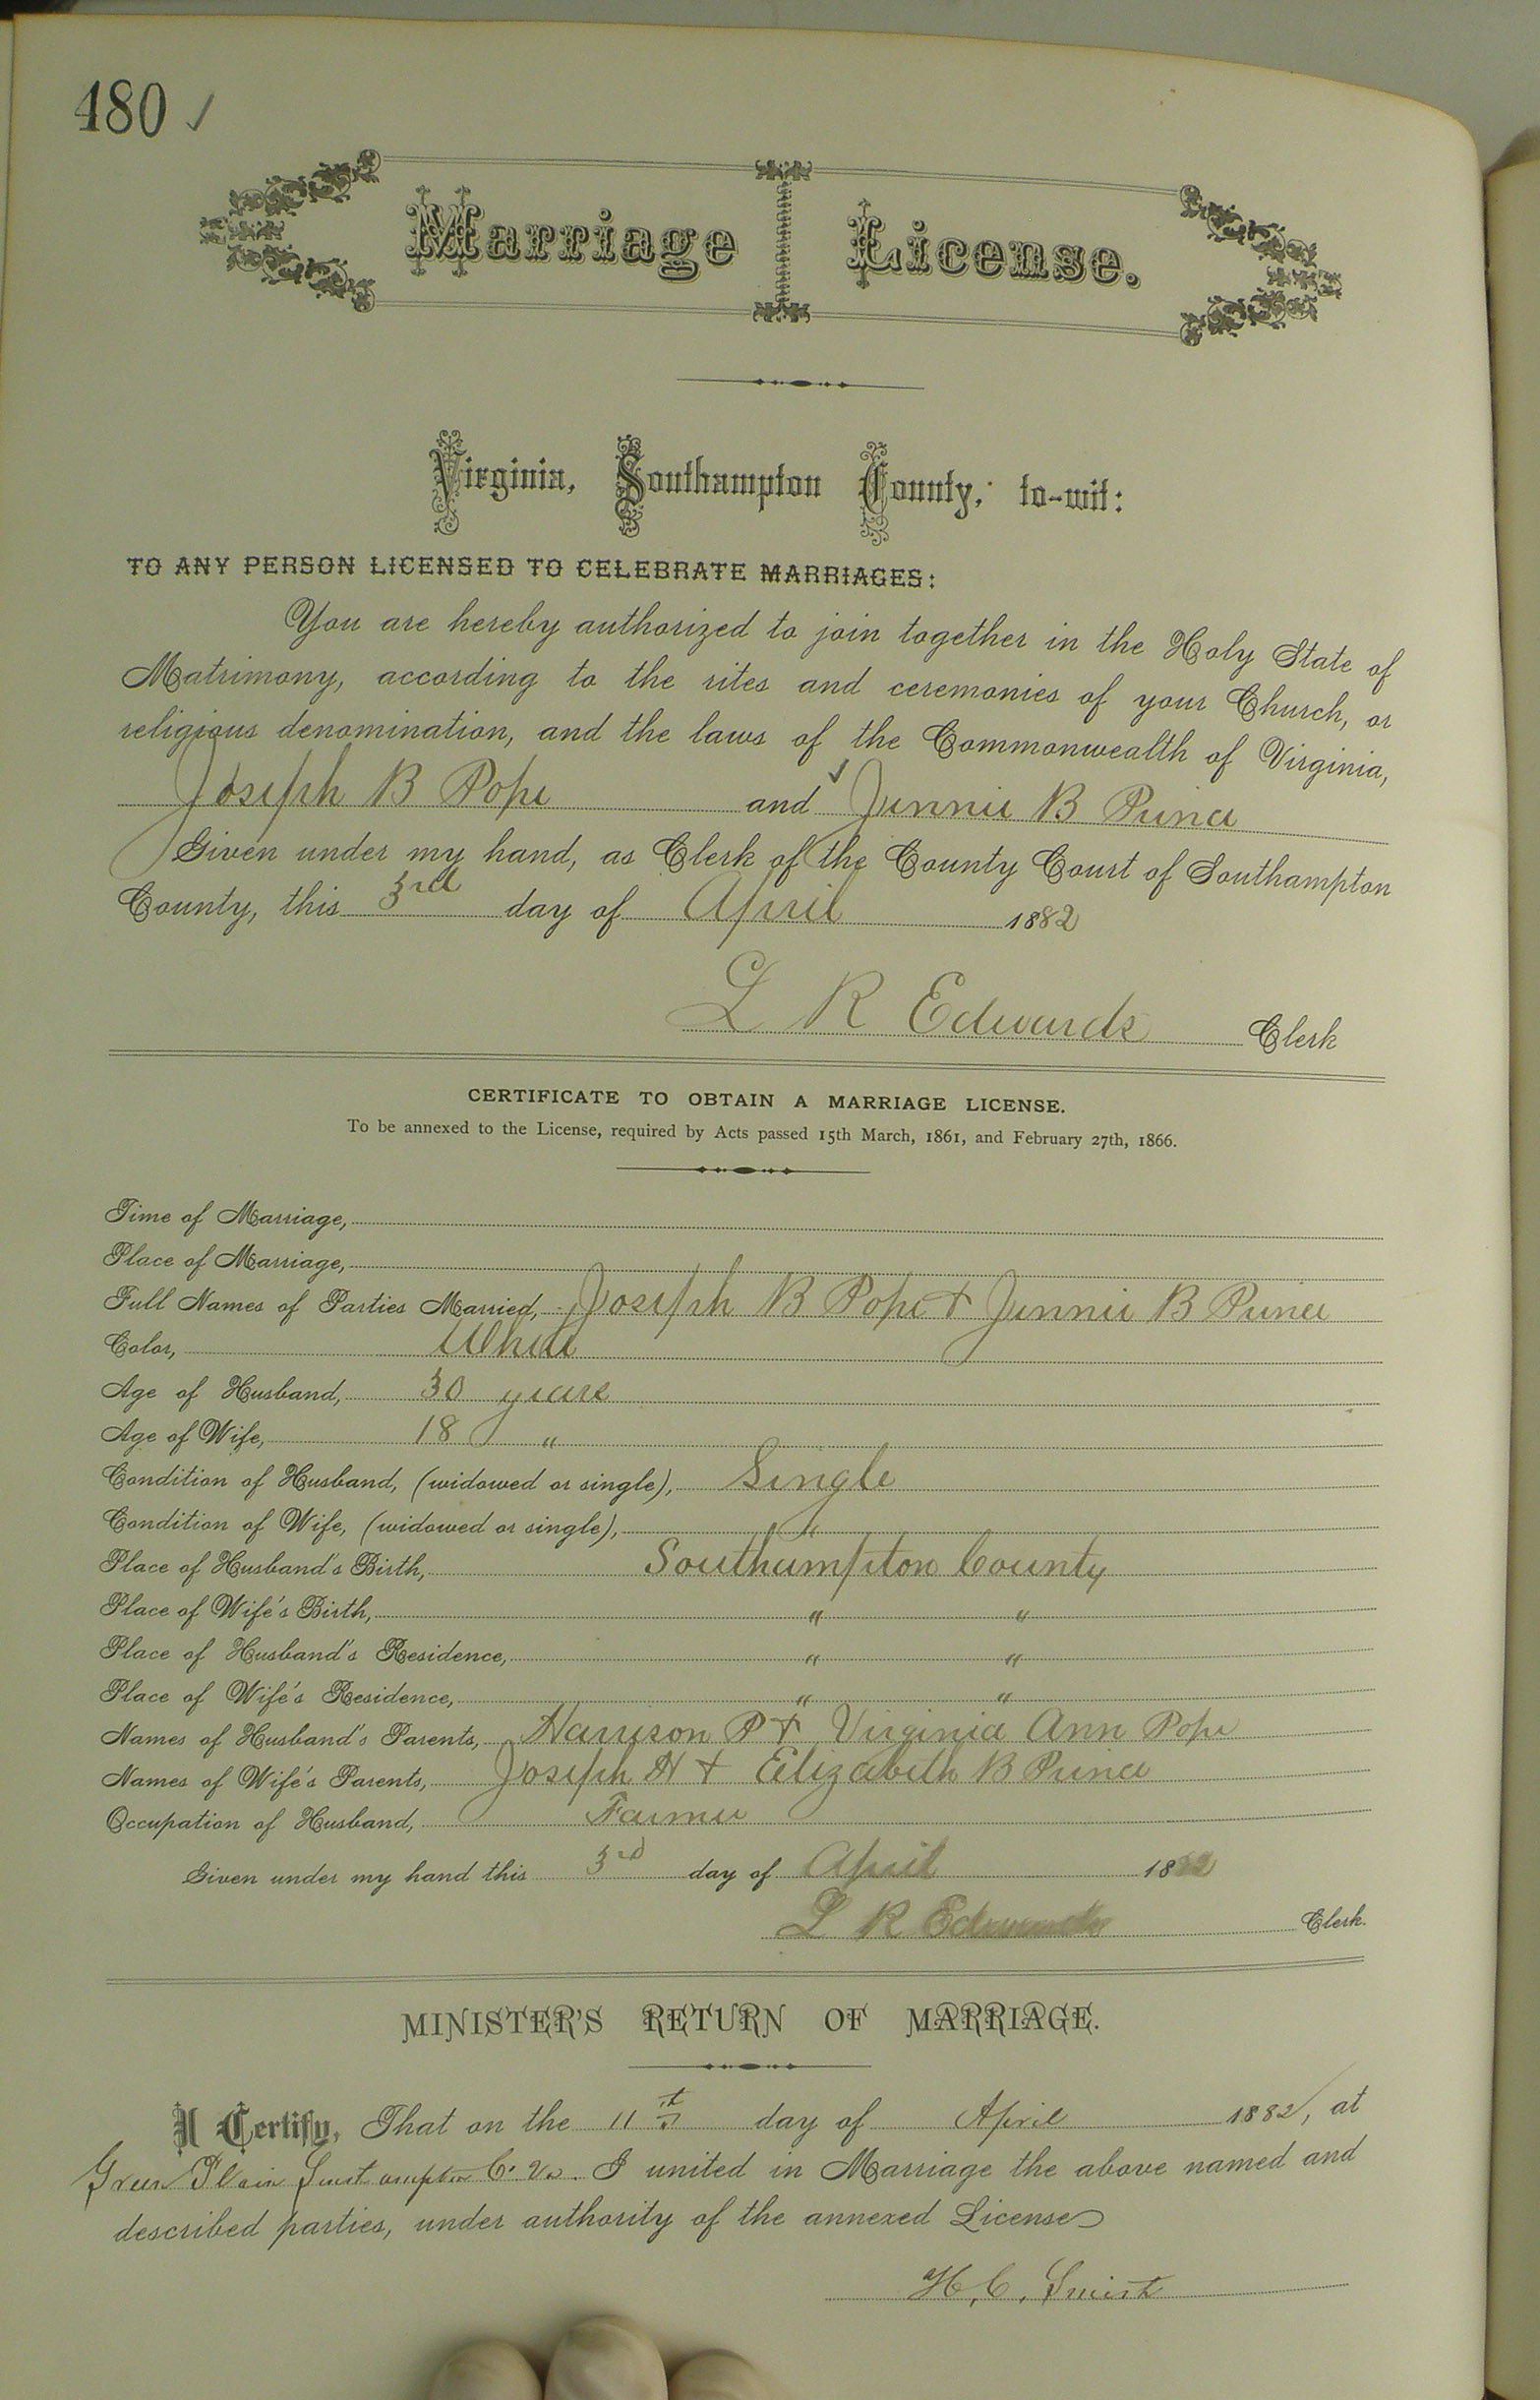 480 ✓
Marriage License.
Virginia, Southampton County, to-wit:
TO ANY PERSON LICENSED TO CELEBRATE MARRIAGES:
You are hereby authorized to join together in the Holy State of
Matrimony, according to the rites and ceremonies of your Church, or
religious denomination, and the laws of the Commonwealth of Virginia,
Joseph B Pope and Jennie B Prince
Given under my hand, as Clerk of the County Court of Southampton
County, this 3rd day of April 1882
L R Edwards Clerk
CERTIFICATE TO OBTAIN A MARRIAGE LICENSE.
To be annexed to the License, required by Acts passed 15th March, 1861, and February 27th, 1866.
Time of Marriage,
Place of Marriage,
Full Names of Parties Married, Joseph B Pope + Jennie B Prince
Color, White
Age of Husband, 30 years
Age of Wife, 18 "
Condition of Husband, (widowed or single), Single
Condition of Wife, (widowed or single), "
Place of Husband's Birth, Southampton County
Place of Wife's Birth, " "
Place of Husband's Residence, " "
Place of Wife's Residence, " "
Names of Husband's Parents, Harrison P + Virginia Ann Pope
Names of Wife's Parents, Joseph H + Elizabeth B Prince
Occupation of Husband, Farmer
Given under my hand this 3rd day of April 1882
L R Edwards Clerk.
MINISTER'S RETURN OF MARRIAGE.
I Certify, That on the 11th day of April 1882, at
Green Plain Southampton C. Va. I united in Marriage the above named and
described parties, under authority of the annexed License
H. C.